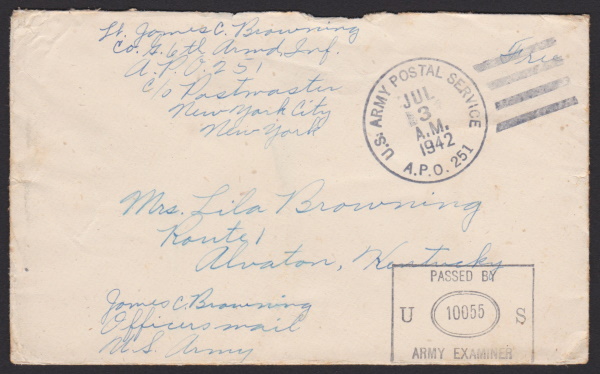 Lt. James C. Browning
Co. G. 6th Armd. Inf.
A.P.O. 251
c/o Postmaster
New York City
New York
Free
U.S. ARMY POSTAL SERVICE
JUL
3
A.M.
1942
A.P.O. 251
Mrs. Lila Browning
Route 1
Alvaton, Kentucky
James C. Browning
Officers mail
U.S. Army
PASSED BY
U 10055 S
ARMY EXAMINER